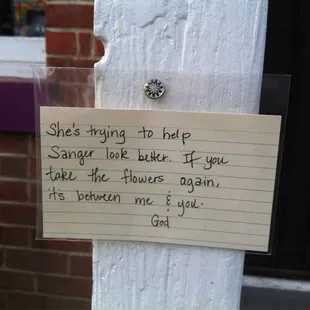 She's trying to help
Sanger look better. If you
take the flowers again,
it's between me & you.
God